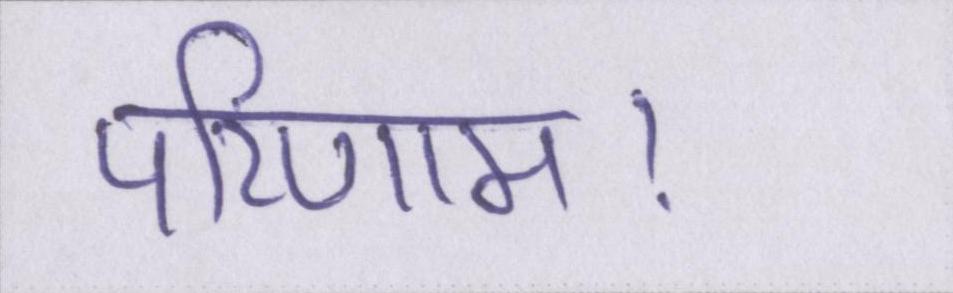 परिणाम!